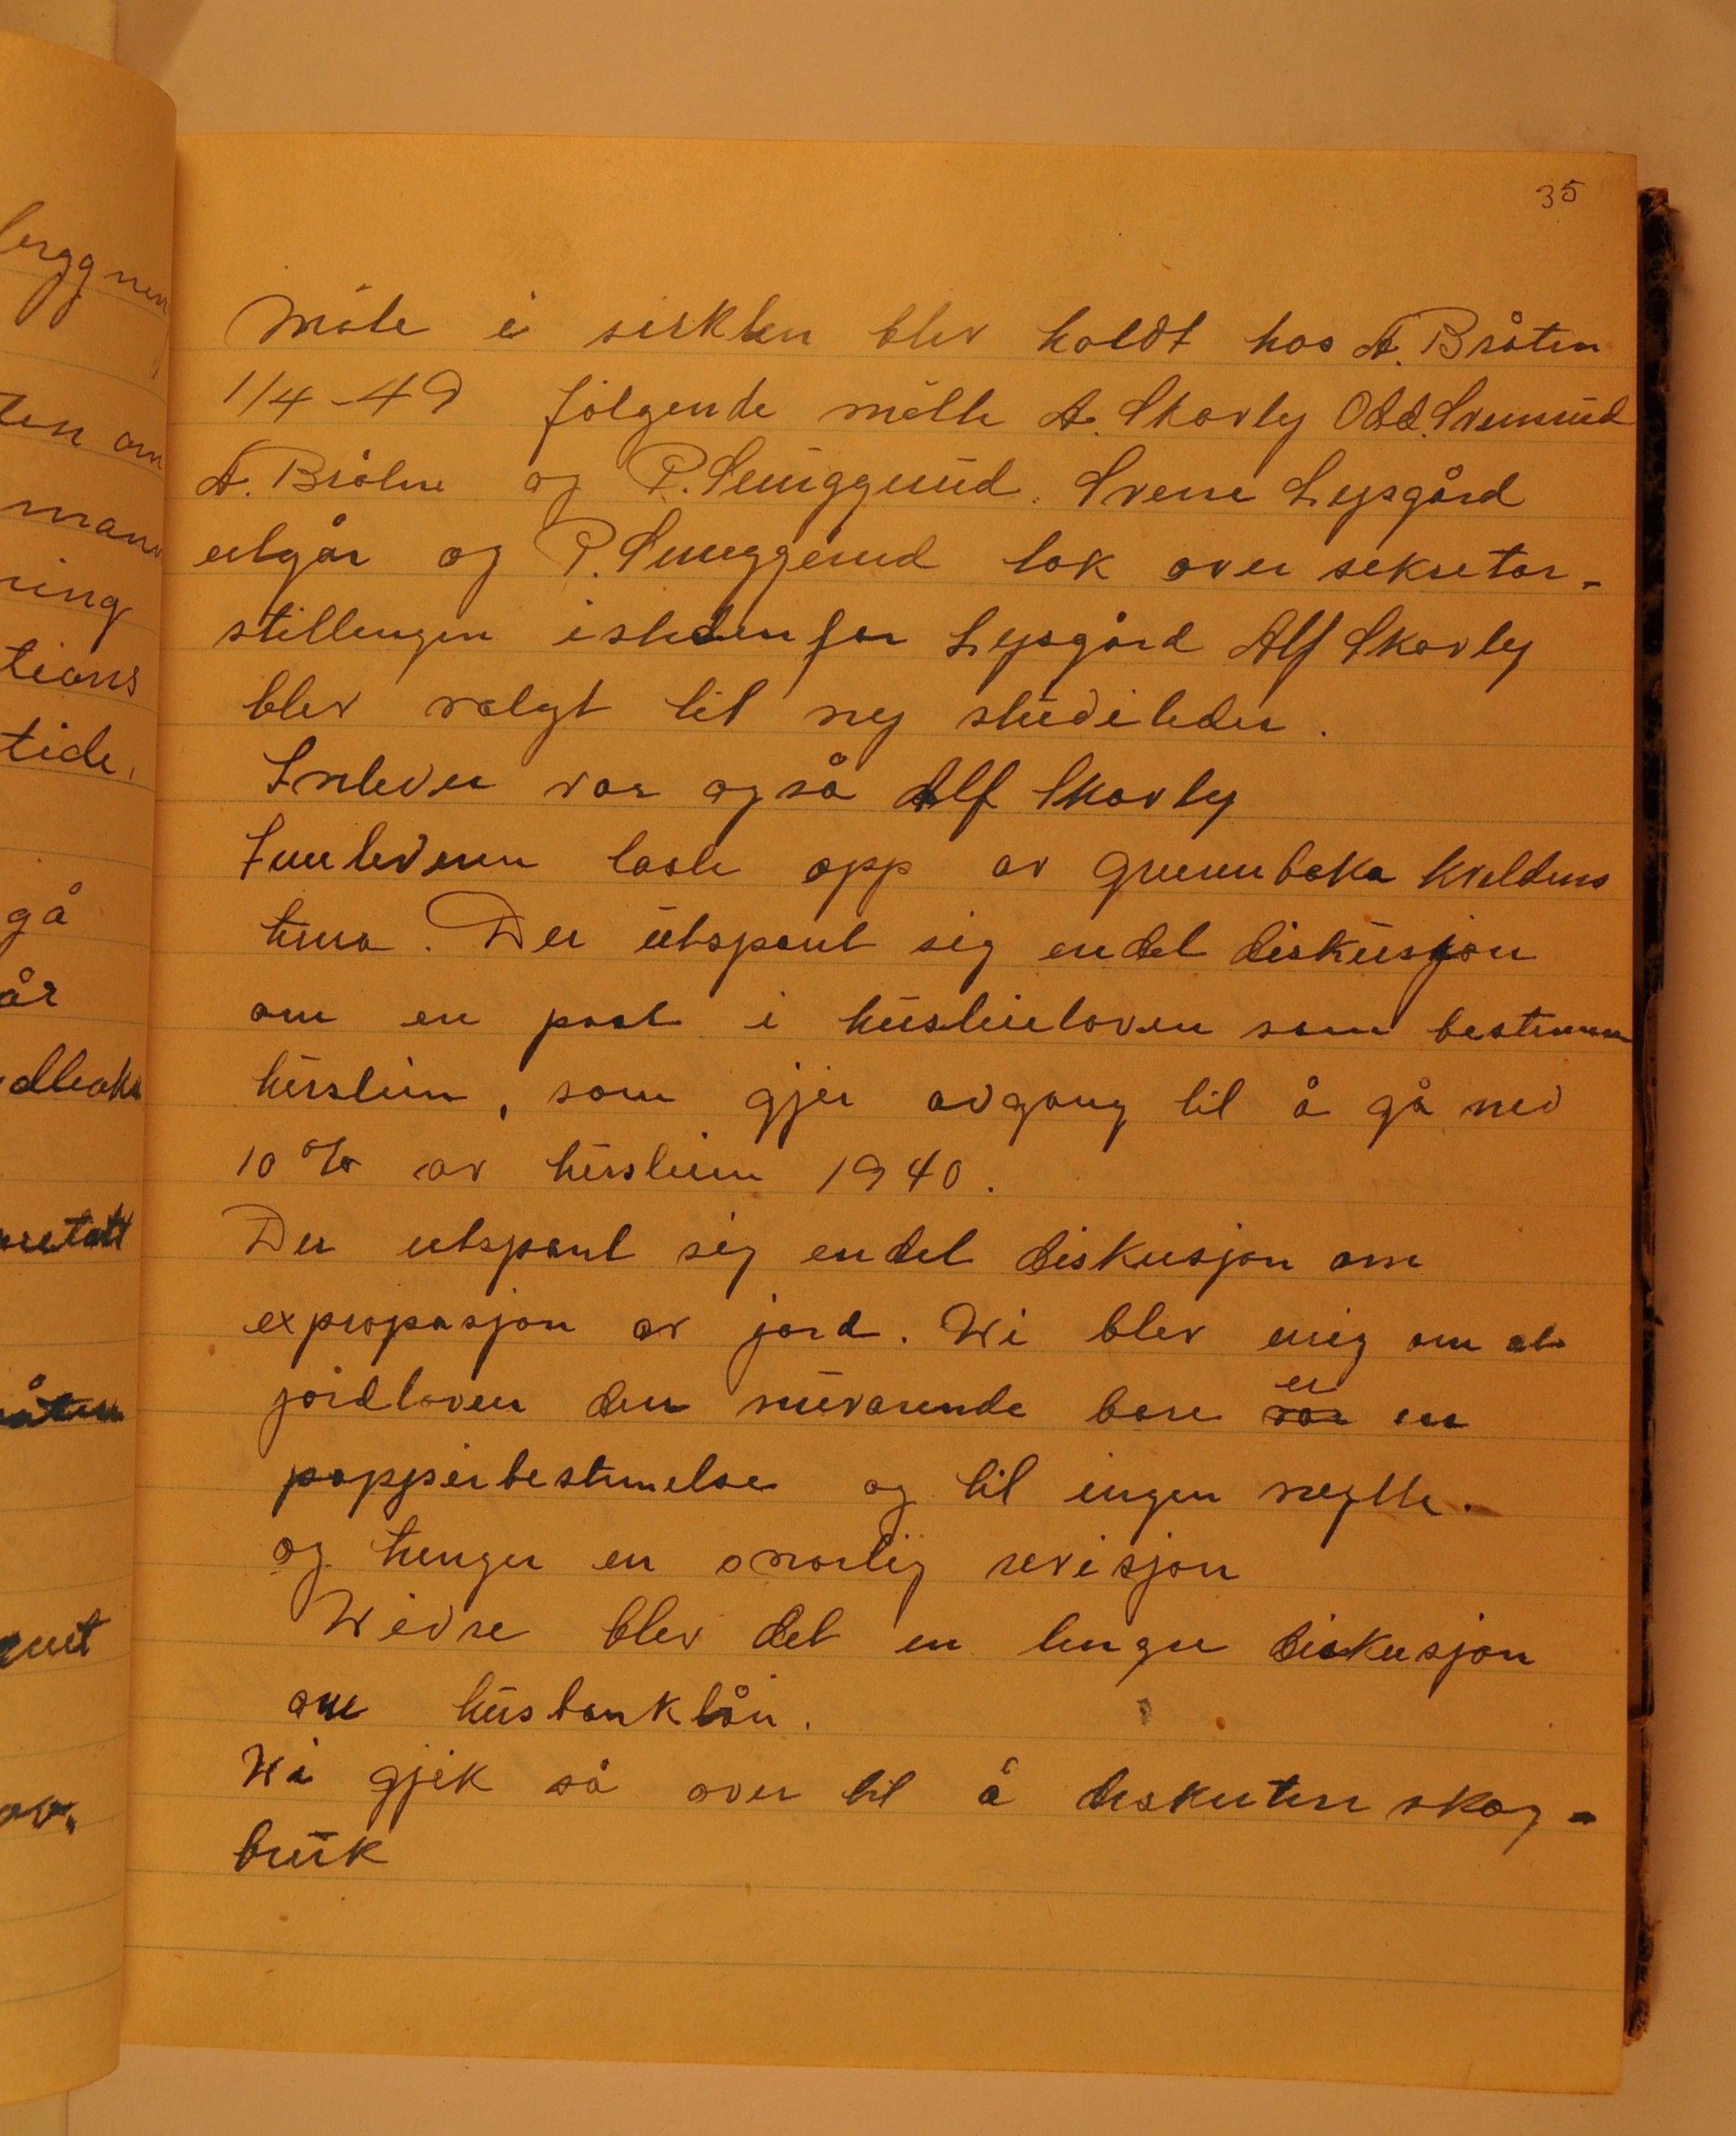 35
Møte i sirklen blev holdt hos A. Bråten
1/4-49 følgende møtte A. Skovly Odd. Svensrud
A. Bråten og P. Smuggerud. Sverre Lysgård
utgår og P. Smuggerud tok over sekretær-
stillingen istedenfor Lysgård Alf Skovly
blev valgt til ny studileder.
Inleder var også Alf Skovly
Innlederen laste opp av grunnboka kveldens
tema. Der utspant sig endel diskusjon
om en post i husleieloven som bestemmer
husleien, som gjer avgang til å gå ned
10 % av husleien 1940.
Der utspant sig endel diskusjon om
expropasjon av jord. Wi blev enig om at
jordloven den nuverende bare var er en
pappirbestemelse og til ingen nytte.
og trenger en snarlig revisjon
Widre blev det en lengre diskusjon
om husbanklån.
Wi gjik så over til å diskutere skog-
bruk
berggren
ten om
mann
ring
tions
tide.
gå
år